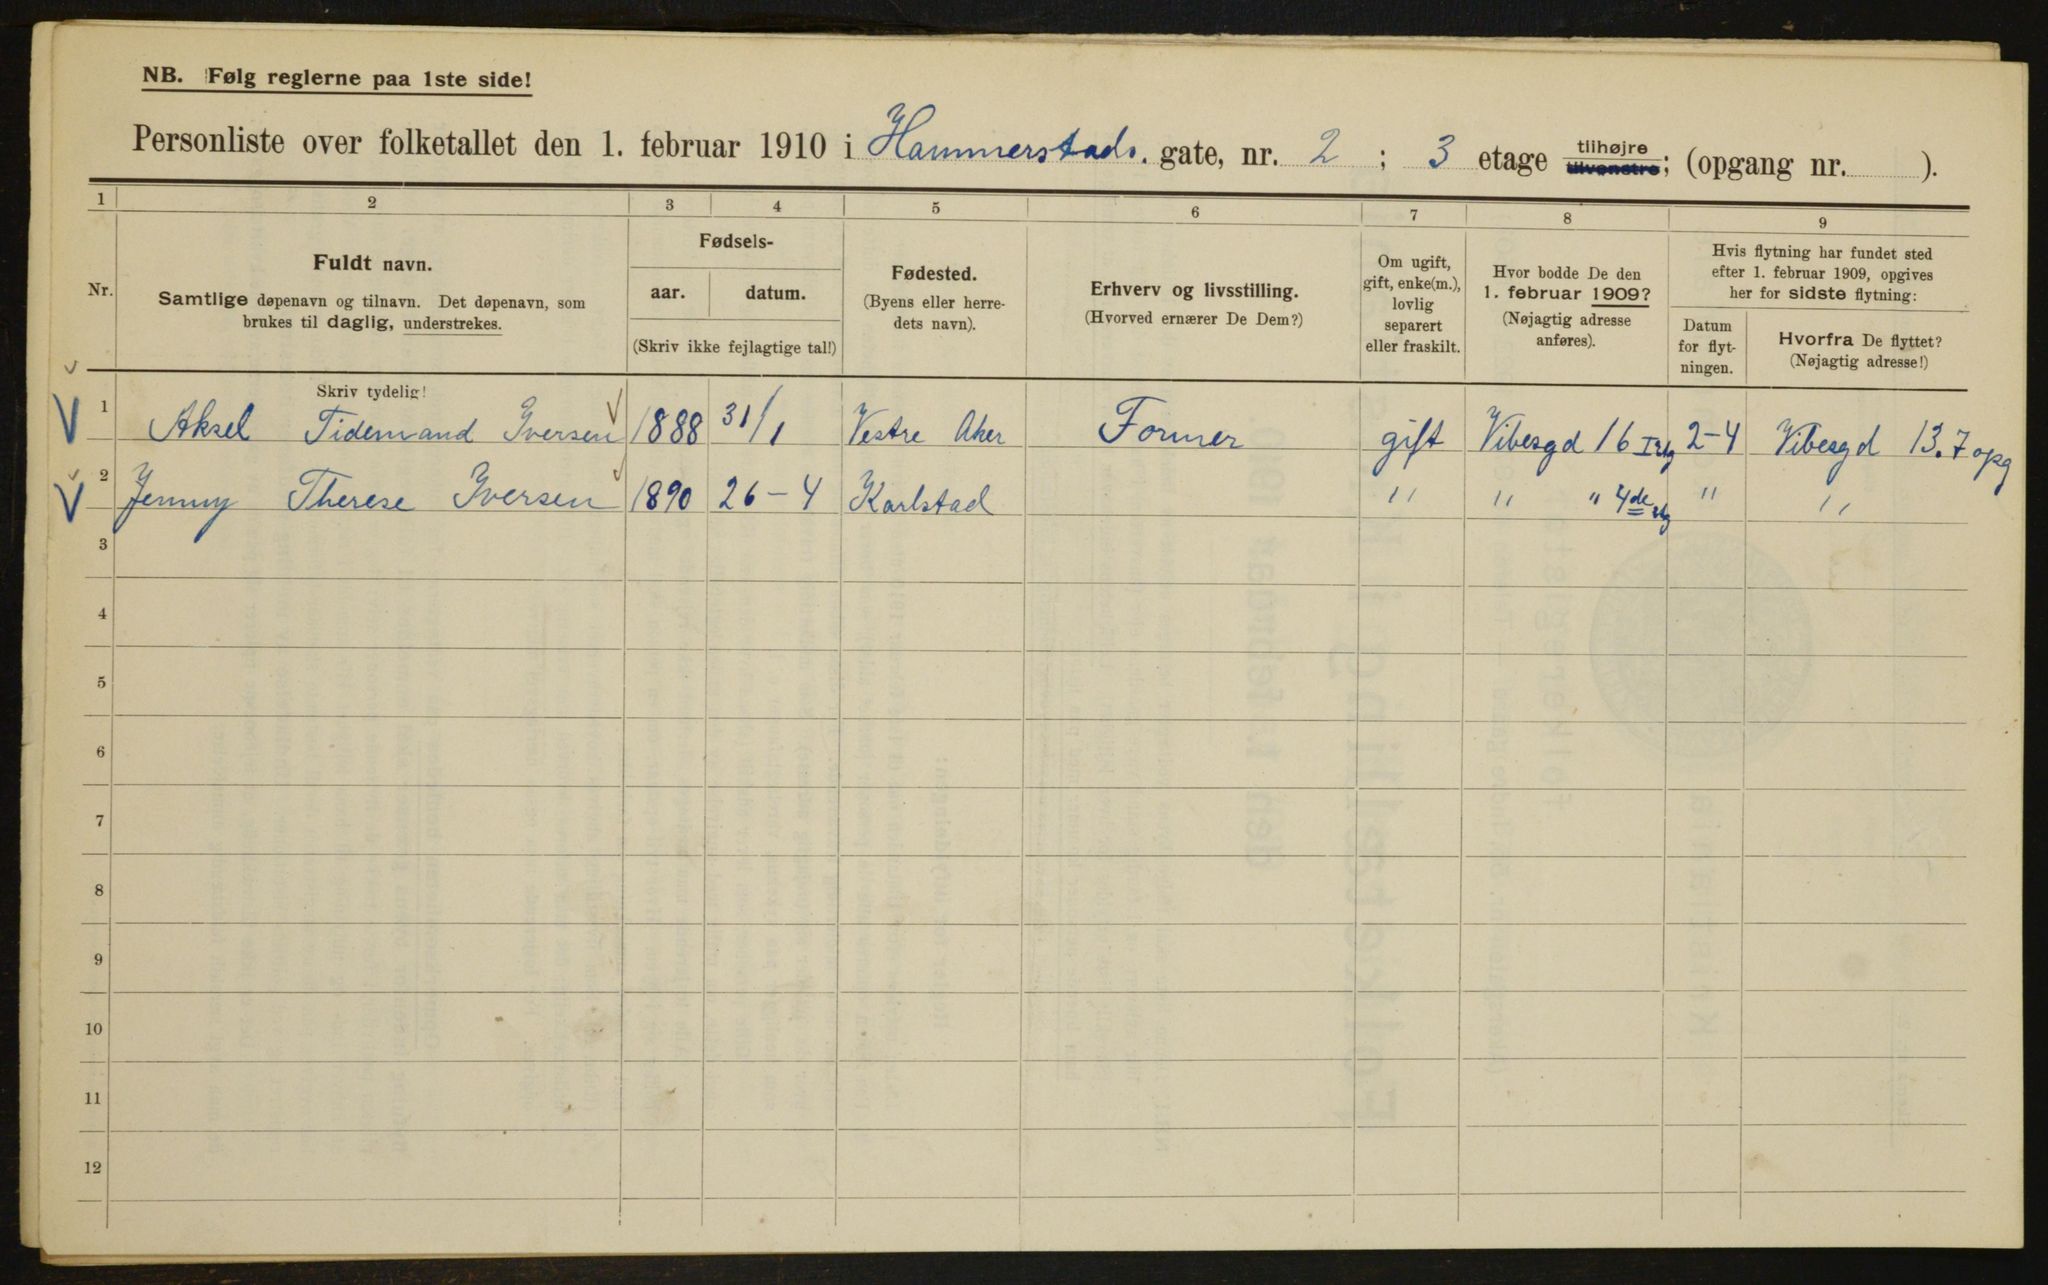 NB. Følg reglerne paa 1ste side!
Personliste over folketallet den 1. februar 1910 i Hammerstads. gate, nr. 2 ; 3 etage tilhøjre tilvenstre; (opgang nr. ).
1 2 3 4 5 6 7 8 9
Nr.
Fuldt navn.
Samtlige døpenavn og tilnavn. Det døpenavn, som
brukes til daglig, understrekes.
Fødsels-
aar. datum.
(Skriv ikke fejlagtige tal!)
Fødested.
(Byens eller herre-
dets navn).
Erhverv og livsstilling.
(Hvorved ernærer De Dem?)
Om ugift,
gift, enke(m.),
lovlig
separert
eller fraskilt.
Hvor bodde De den
1. februar 1909?
(Nøjagtig adresse
anføres).
Hvis flytning har fundet sted
efter 1. februar 1909, opgives
her for sidste flytning:
Datum
for flyt-
ningen.
Hvorfra De flyttet?
(Nøjagtig adresse!)
Skriv tydelig!
1 Aksel Tidemand Iversen 1888 31/1 Vestre Aker Former gift Vibesgd 16 2-4 Vibesgd 13. 7 opg
2 Jenny Therese Iversen 1890 26-4 Karlstad " " " 4de etg " "
3
4
5
6
7
8
9
10
11
12